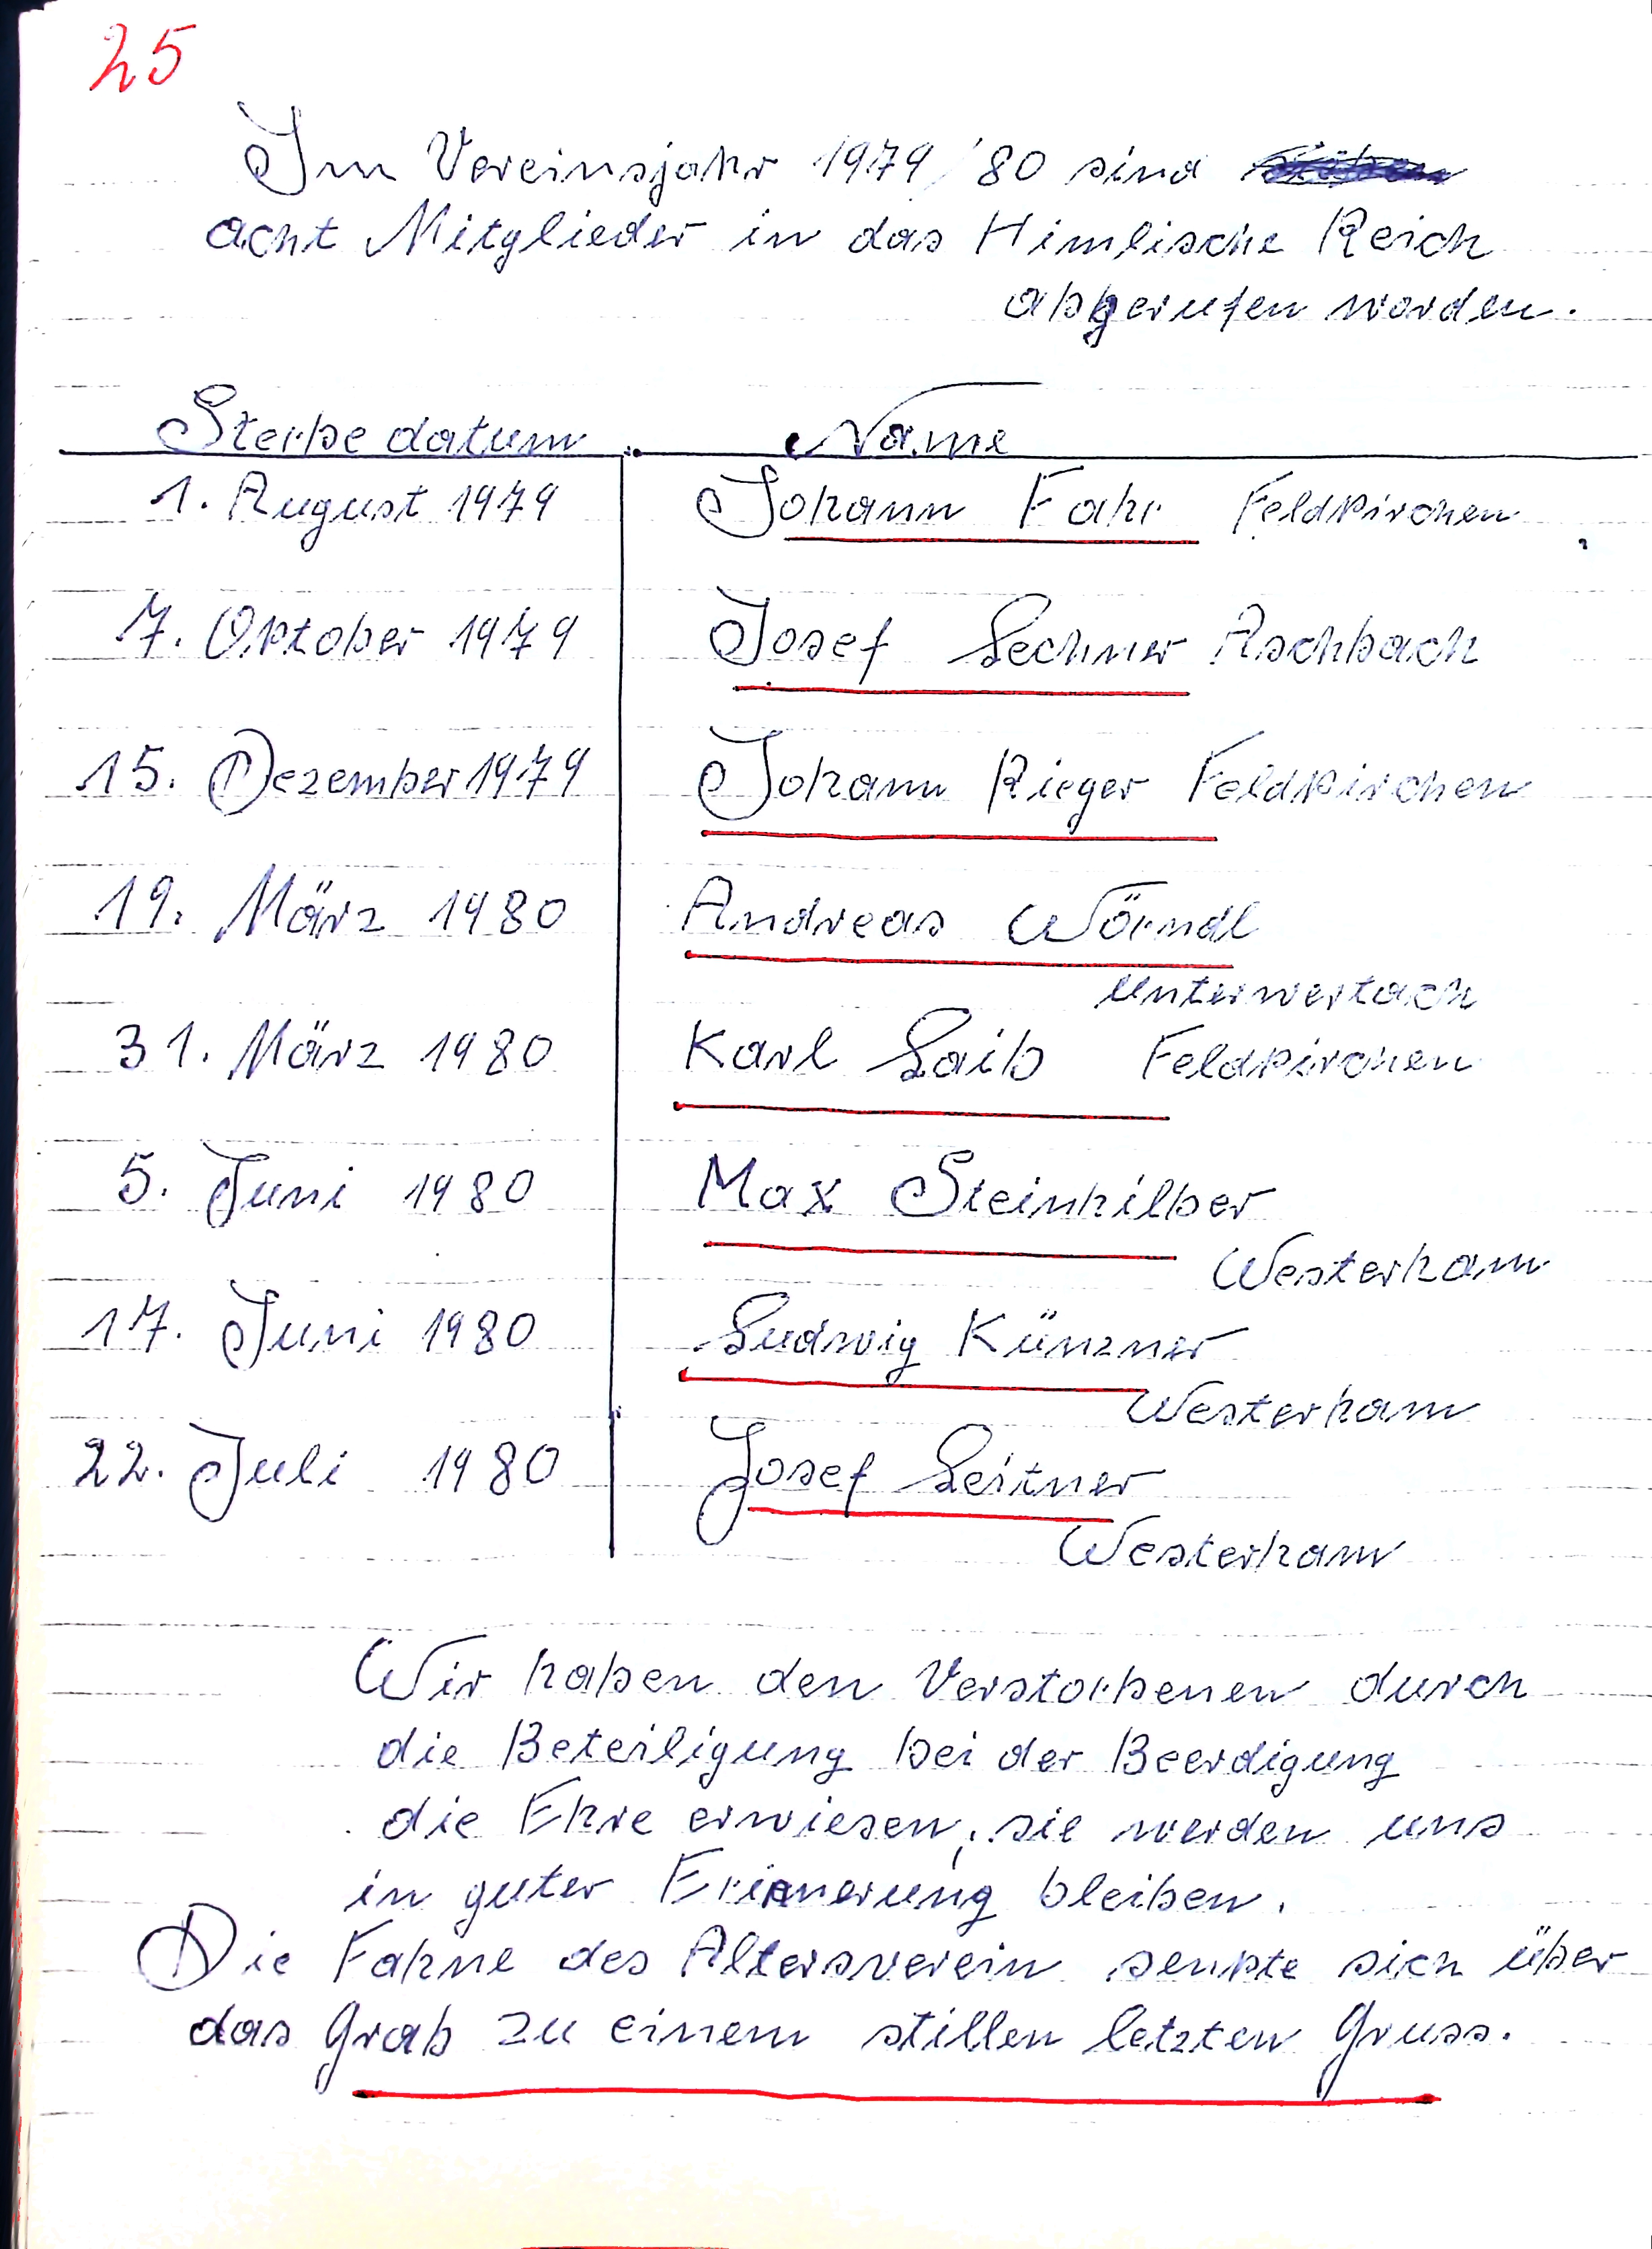 25
Im Vereinsjahr 1979/80 sind
acht Mitglieder in das Himlische Reich
abgerufen worden.
Sterbedatum Name
1. August 1979 Johann Fahr Feldkirchen
7. Oktober 1979 Josef Lechner Aschbach
15. Dezember 1979 Johann Rieger Feldkirchen
19. März 1980 Andreas Wörndl
Unterwertach
31. März 1980 Karl Laib Feldkirchen
5. Juni 1980 Max Steinhilber
Westerham
17. Juni 1980 Ludwig Künzner
Westerham
22. Juli 1980 Josef Leitner
Westerham
Wir haben den Verstorbenen durch
die Beteiligung bei der Beerdigung
die Ehre erwiesen, sie werden uns
in guter Erinnerung bleiben.
Die Fahne des Altersverein senkte sich über
das Grab zu einem stillen letzten Gruss.